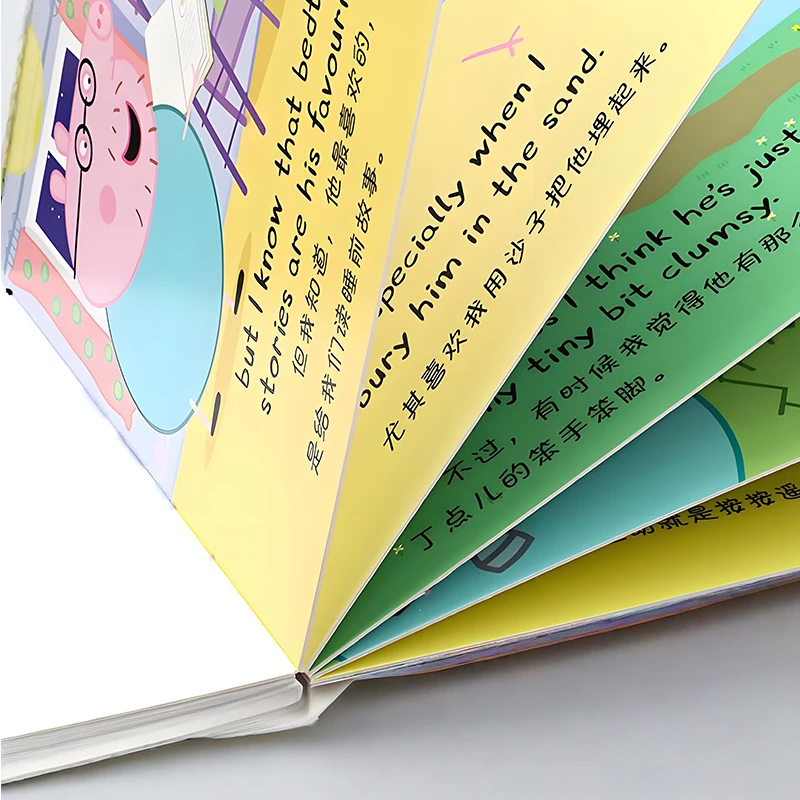 but I know that
stories are his
但我知道，他最喜欢的，
是给我们读睡前故事。
when I
him in the sand.
尤其喜欢我用沙子把他埋起来。
I think he's just
tiny bit clumsy.
不过，有时候我觉得他有那
丁点儿的笨手笨脚。
就是按按